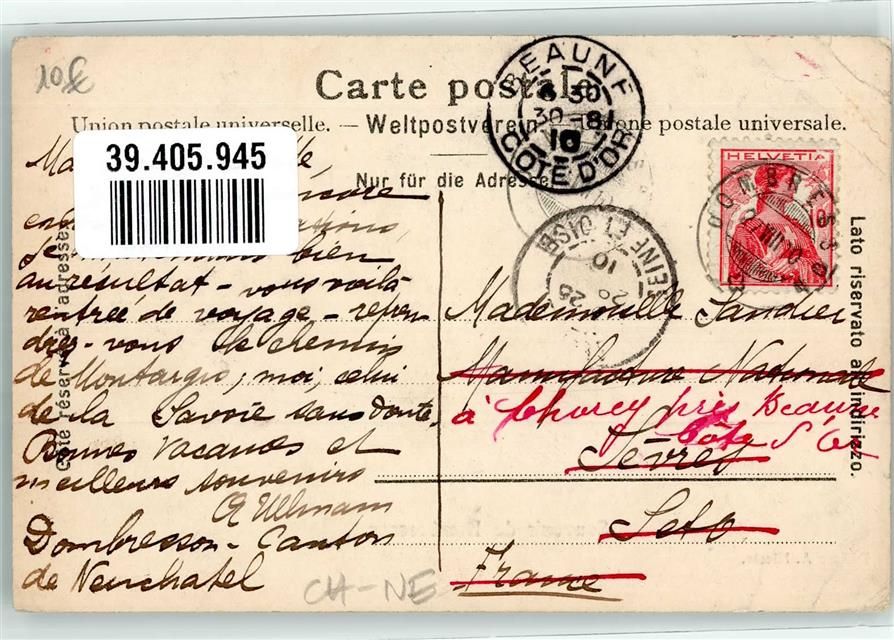 10£
Carte postale
Union postale universelle. — Weltpostverein — Unione postale universale.
Nur für die Adresse
BEAUNE
6 30
30 -8
10
CÔTE D'OR
39.405.945
HELVETIA
DOMBRESSON
SEINE ET OISE
10
25
Côté réservé à l'adresse.
Lato riservato all'indirizzo.
encore
bien
au résultat - vous voilà
rentrée de voyage - repren-
drez-vous le chemin
de Montargis; moi, celui
de la Savoie sans doute.
Bonnes vacances et
meilleurs souvenirs
Ullmann
Dombresson - Canton
de Neuchatel
Mademoiselle Sandier
Manufacture Nationale
à Chorey près Beaune
Côte d'Or
Sèvres
Seto
France
CH-NE